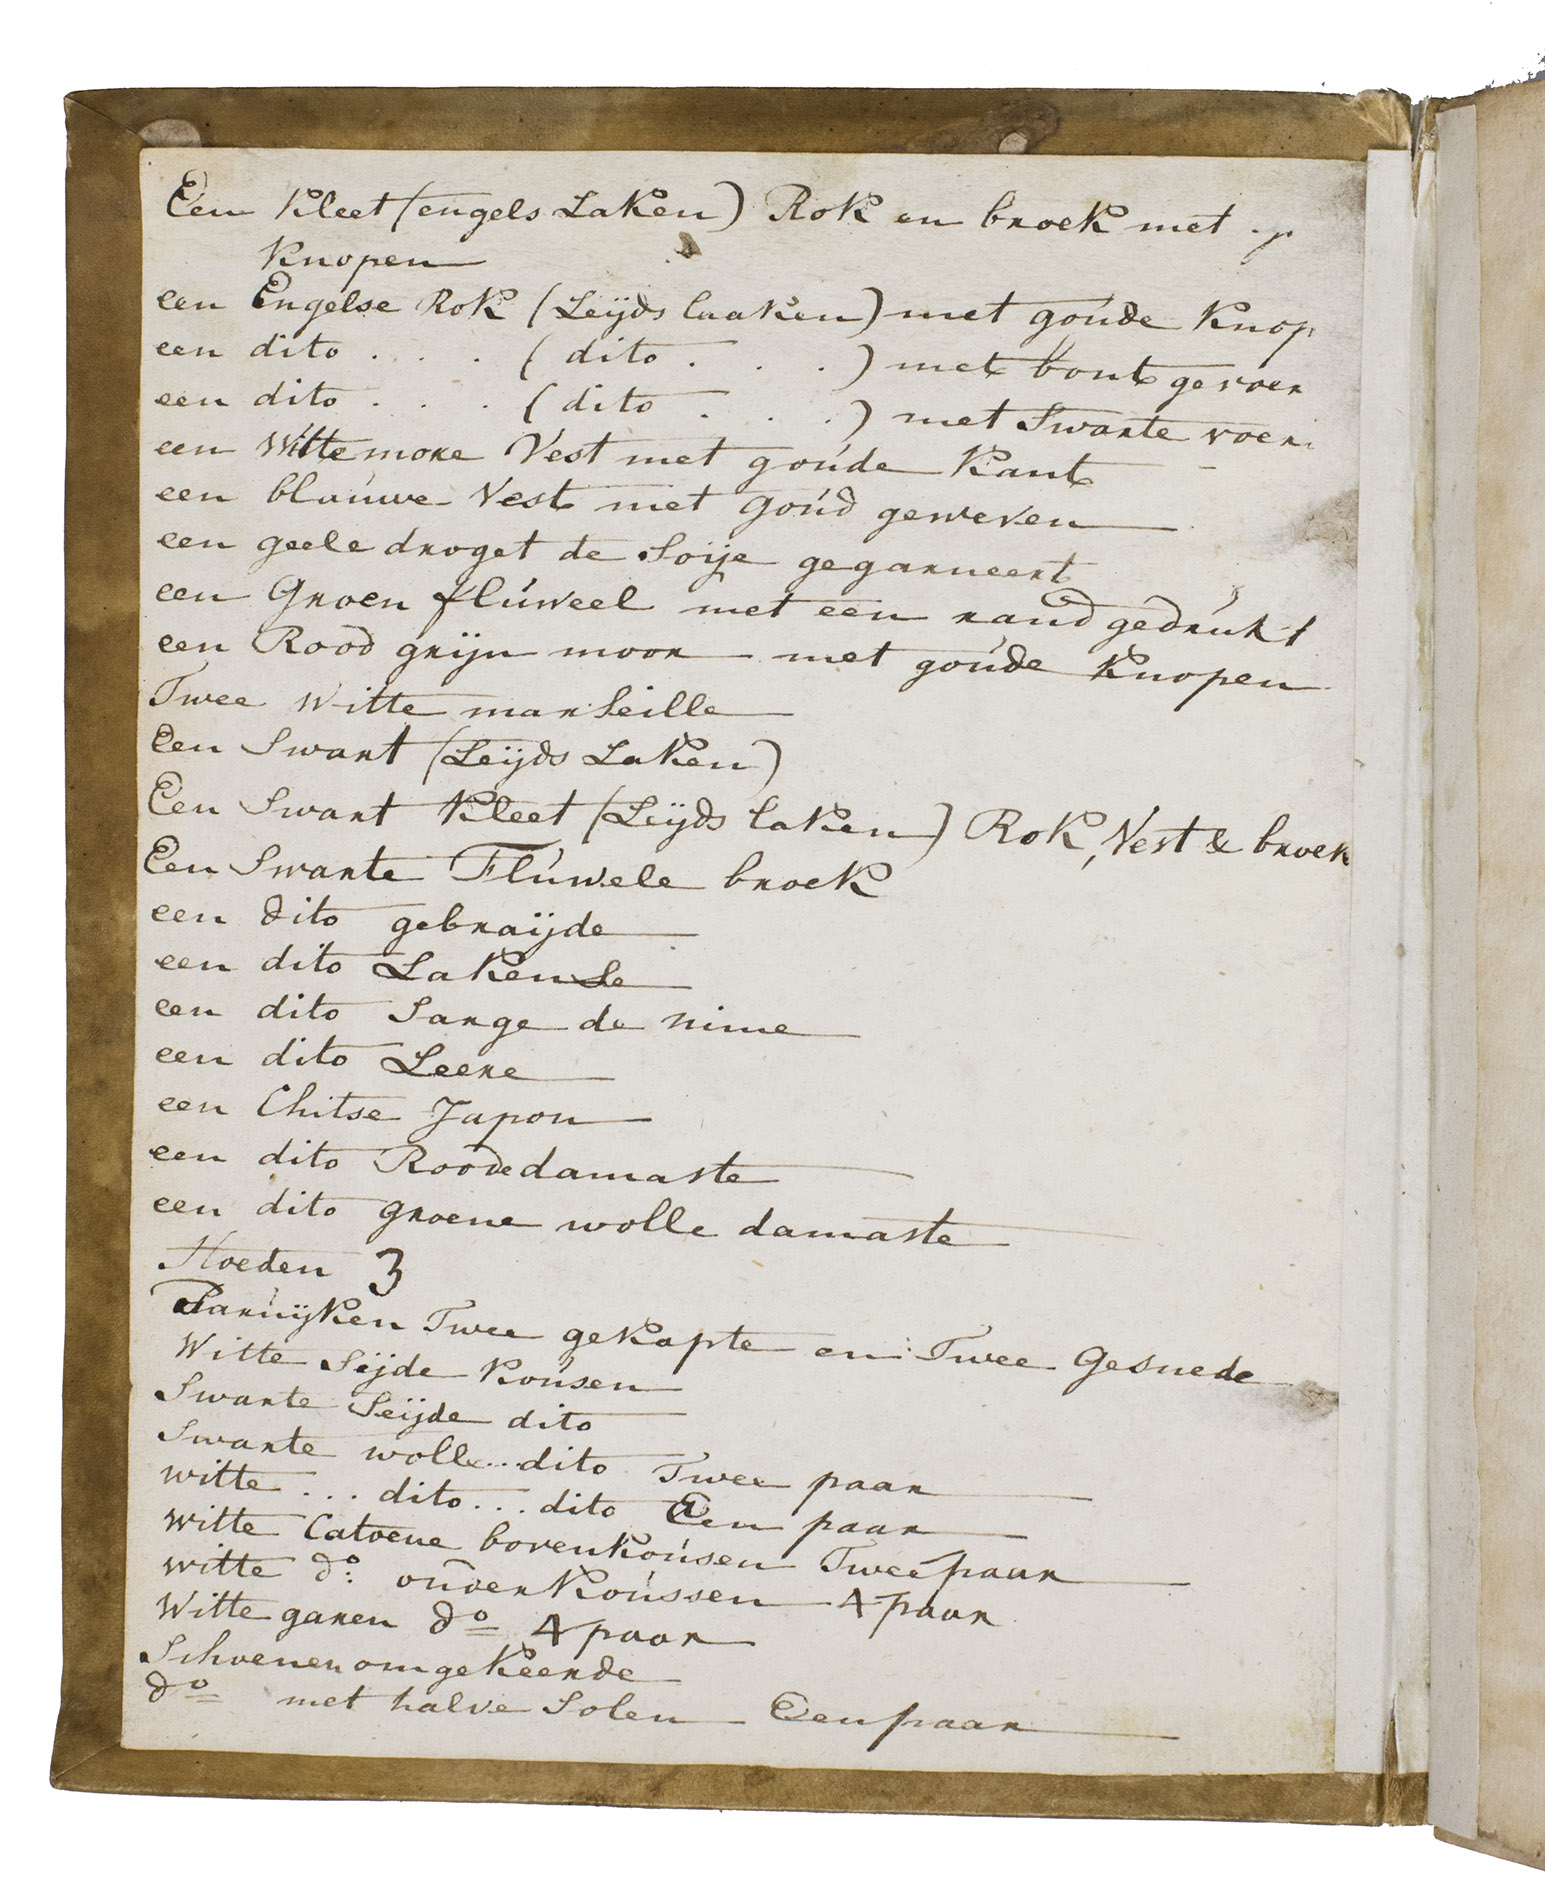 Een Kleet (engels Laken) Rok en broek met
Knopen
een Engelse Rok (Leijds laaken) met goude Knop
een dito . . . (dito . . .) met bont gevoer
een dito . . . (dito . . .) met Swarte voer
een Witte more Vest met goude Kant
een blauwe Vest met goud geweven
een geele droget de Soije gegarneert
een Groen fluweel met een rand gedrukt
een Rood grijn moor met goude Knopen
Twee Witte marseille
Een Swart (Leijds Laken)
Een Swart Kleet (Leijds laken) Rok, Vest & broek
Een Swarte Fluwele broek
een dito gebraijde
een dito Lakense
een dito Sarge de nime
een dito Leere
een Chitse Japon
een dito Roode damaste
een dito groene wolle damaste
Hoeden 3
Paruijken Twee gekapte en Twee Gesnede
Witte Sijde Kousen
Swarte Seijde dito
Swarte wolle .. dito Twee paar
witte ... dito ... dito Een paar
witte Catoene bovenkousen Twee paar
witte do: onder Koussen 4 paar
Witte garen do 4 paar
Schoenen omgekeerde
do met halve Solen Een paar